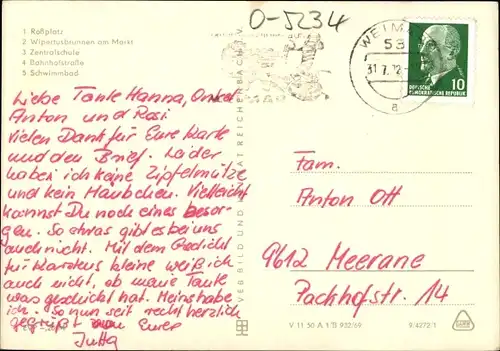 1 Roßplatz
2 Wipertusbrunnen am Markt
3 Zentralschule
4 Bahnhofstraße
5 Schwimmbad
O-5234
WEIMA
53
31.7.72
a
10
DEUTSCHE
DEMOKRATISCHE REPUBLIK
Liebe Tante Hanna, Onkel
Anton und Rosi
Vielen Dank für Eure Karte
und den Brief. Leider
habe ich keine Zipfelmütze
und kein Häubchen. Vielleicht
kannst Du noch eines besor-
gen. So etwas gibt es bei uns
auch nicht. Mit dem Gedicht
für Karstens kleine weiß ich
auch nicht, ob meine Tante
was geschickt hat. Meins habe
ich. So nun seit recht herzlich
gegrüßt von Eurer
Jutta
VEB BILD UND HEIMAT REICHENBACH I.V.
Fam.
Anton Ott
9612 Meerane
Packhofstr. 14
V 11 50 A 1 B 932/69
9/4272 1